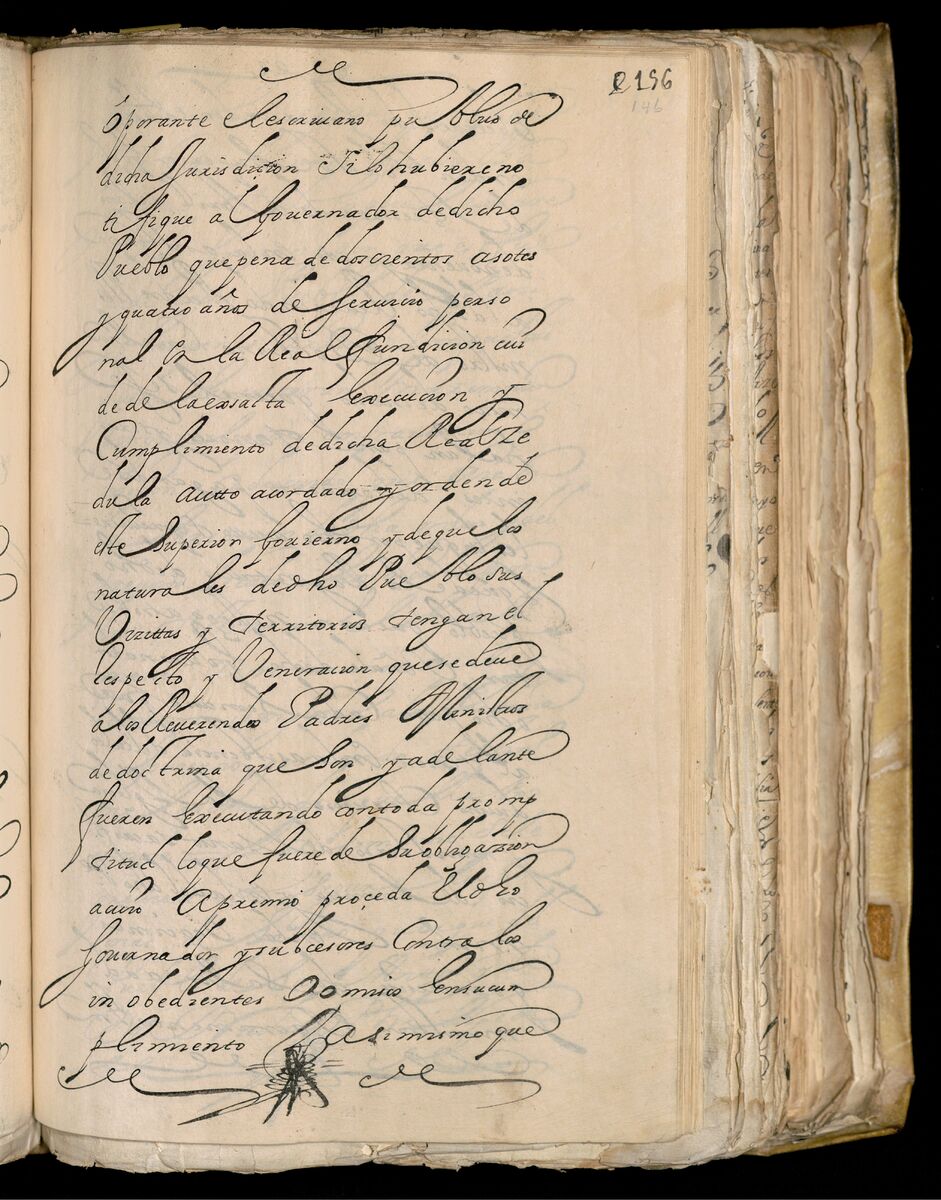 2156
146
o porante el escriuano publico de
dicha Jurisdicion Si lo hubiere no
tifique al Gouernador de dicho
Pueblo que pena de doscientos asotes
y quatro años de seruicio perso
nal En la Real fundicion cui
de de la exsacta Execucion y
Cumplimiento de dicha Real Ze
dula autto acordado y orden de
este Superior Gouierno y de que los
naturales de dho Pueblo sus
Vizittas y territorios tengan el
Respecto y Veneracion que se deue
a los Reuerendos Padres Ministros
de doctrina que Son y adelante
fueren Executando con toda promp
titud lo que fuere de Su obligazion
a cuio Apremio proceda El dho
Gouernador y subcesores Contra los
in obedientes O omisos En su cum
plimiento Y asi mismo que